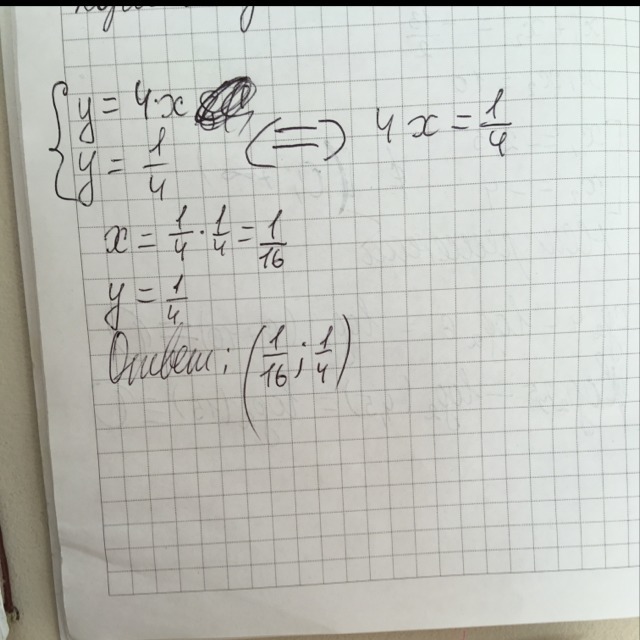 { y = 4·x
y = 1/4 <=> 4x = 1/4
x = 1/4 · 1/4 = 1/16
y = 1/4
Ответ: (1/16; 1/4)